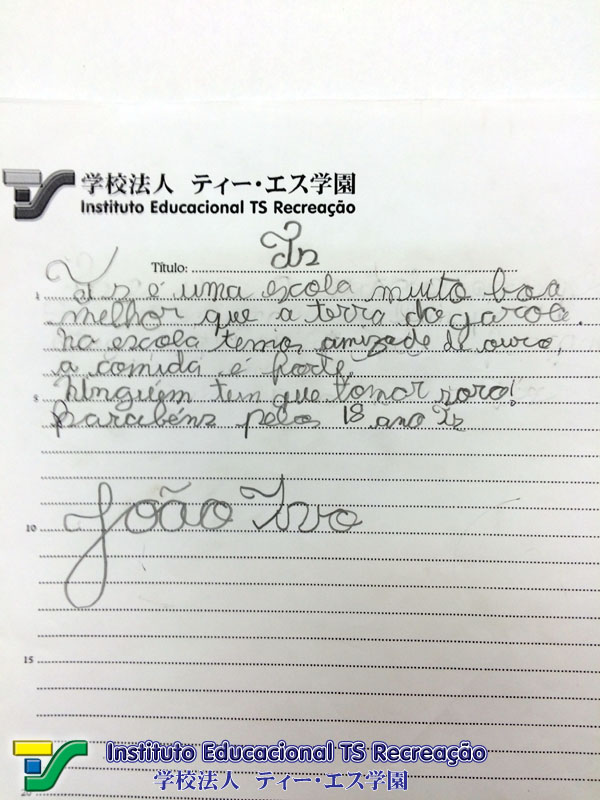 学校法人 ティー・エス学園
Instituto Educacional TS Recreação
Título: Ts
1 Ts é uma escola muito boa
melhor que a terra da garoa.
na escola temos amizade de ouro,
a comida é forte,
5 Ninguém tem que tomar soro!
Parabéns pelos 18 ano Ts
10 João Ivo
15
20
Instituto Educacional TS Recreação
学校法人 ティー・エス学園